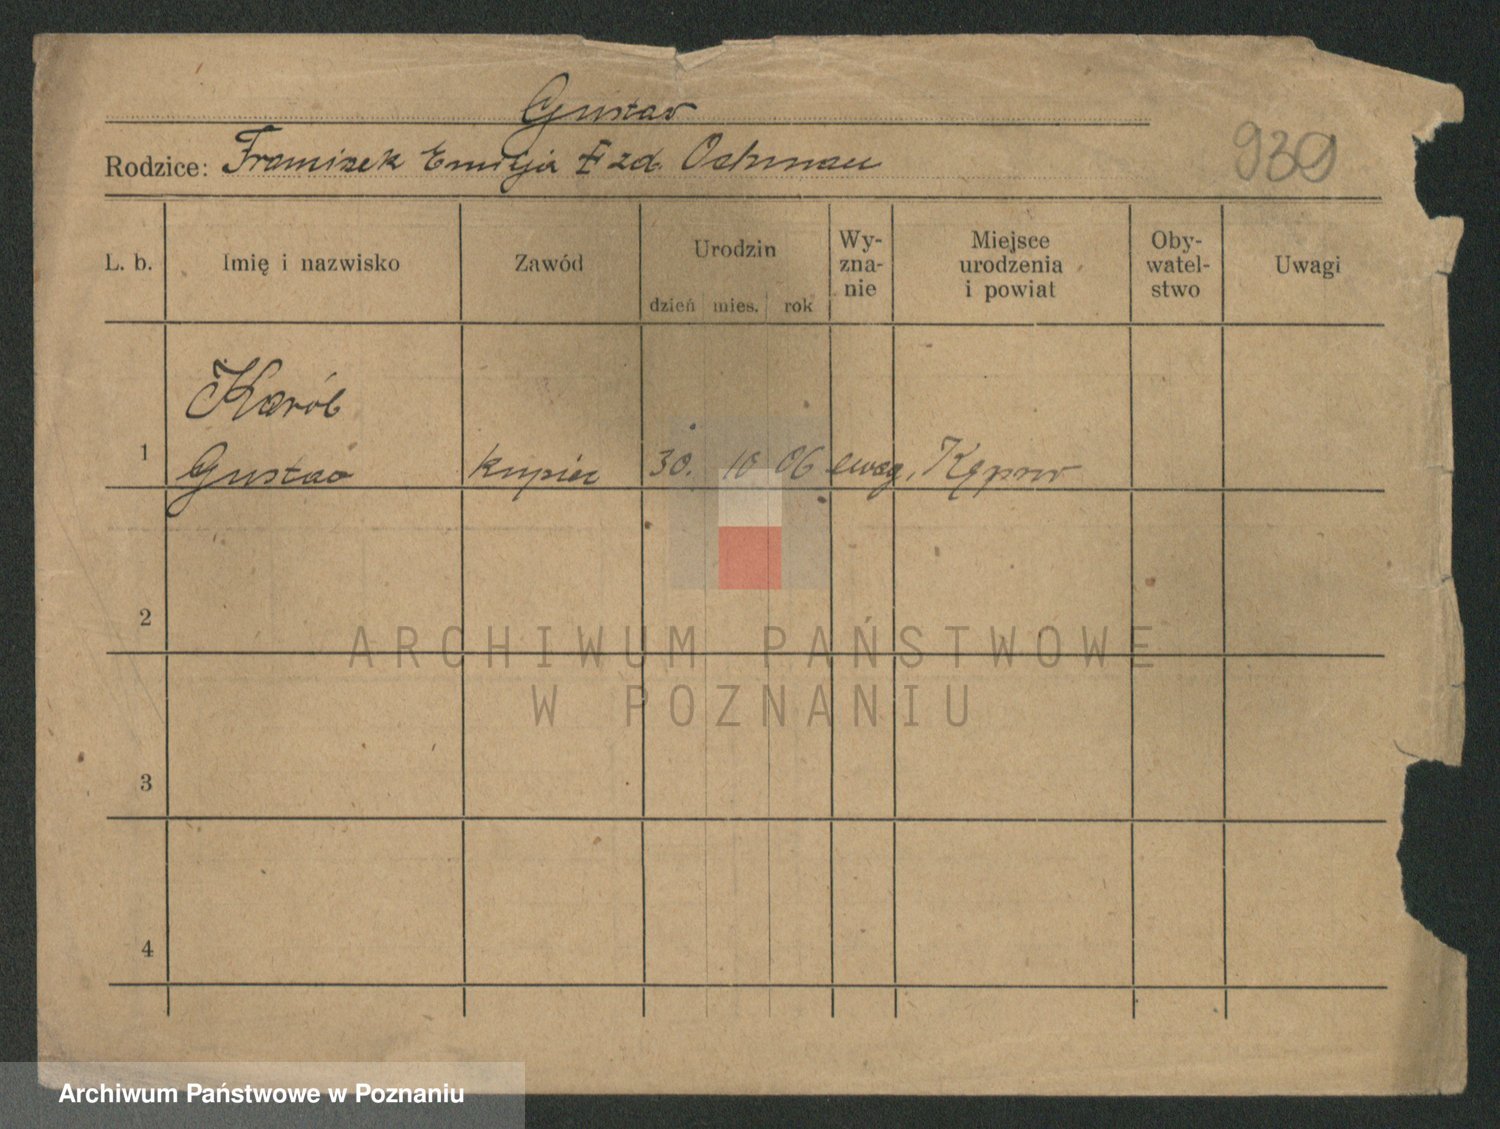 Gustav
939
Rodzice: Franciszek Emilja zd. Ochman
L. b. Imię i nazwisko Zawód Urodzin dzień mies. rok Wy-zna-nie Miejsce urodzenia i powiat Oby-watel-stwo Uwagi
Karób
1 Gustav kupiec 30. 10 06 ewag. Kępno
2
ARCHIWUM PAŃSTWOWE
W POZNANIU
3
4
Archiwum Państwowe w Poznaniu